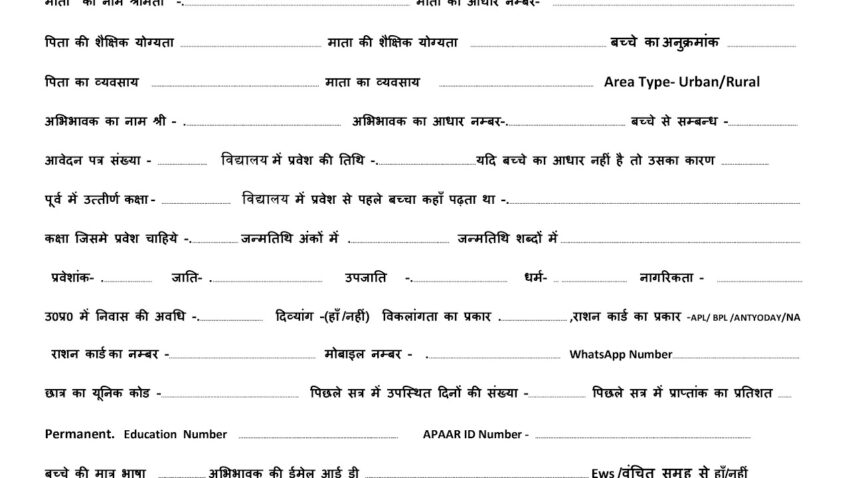 माता का नाम श्रीमती -. माता का आधार नम्बर-
पिता की शैक्षिक योग्यता माता की शैक्षिक योग्यता बच्चे का अनुक्रमांक
पिता का व्यवसाय माता का व्यवसाय Area Type- Urban/Rural
अभिभावक का नाम श्री - . अभिभावक का आधार नम्बर-. बच्चे से सम्बन्ध -
आवेदन पत्र संख्या - विद्यालय में प्रवेश की तिथि -. यदि बच्चे का आधार नहीं है तो उसका कारण
पूर्व में उत्तीर्ण कक्षा - विद्यालय में प्रवेश से पहले बच्चा कहाँ पढ़ता था -.
कक्षा जिसमे प्रवेश चाहिये -. जन्मतिथि अंकों में . जन्मतिथि शब्दों में
प्रवेशांक- . जाति- . उपजाति -. धर्म- नागरिकता -
उ0प्र0 में निवास की अवधि -. दिव्यांग -(हाँ/नहीं) विकलांगता का प्रकार . ,राशन कार्ड का प्रकार -APL/ BPL /ANTYODAY/NA
राशन कार्ड का नम्बर - मोबाइल नम्बर - . WhatsApp Number
छात्र का यूनिक कोड - पिछले सत्र में उपस्थित दिनों की संख्या - पिछले सत्र में प्राप्तांक का प्रतिशत
Permanent. Education Number APAAR ID Number -
बच्चे की मात्र भाषा अभिभावक की ईमेल आई डी Ews /वंचित समूह से हाँ/नहीं